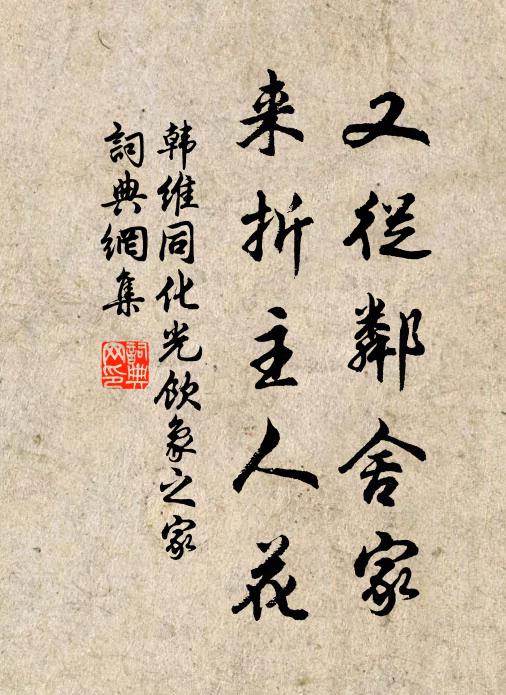 又從鄰舍家
来折主人花
韩維同化光飲象之家
詞典網集
詞典网印